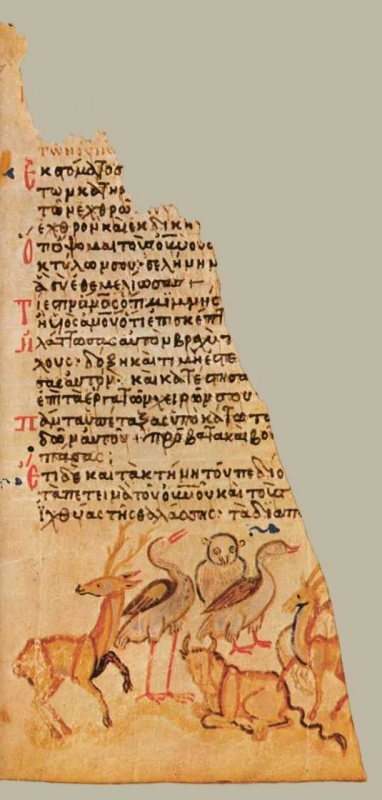 Ἐκ στόματος
τῶν ἐχθρῶ
ἐχθρὸν καὶ ἐκδικη
Ὅτι ὄψομαι τοὺς οὐνοὺς
κτύλων σου· σελήνην
ἃ σὺ ἐθεμελίωσας
Τί ἐστιν ἄνος ὅτι μιμνησ
ἢ υἱὸς ἀνου ὅτι ἐπισκεπτ
Ἠλάττωσας αὐτὸν βραχύ τ
λους· δόξη καὶ τιμὴ ἐστε
σας αὐτόν· καὶ κατέστησα
ἐπὶ τὰ ἔργα τῶν χειρῶν σου
Πάντα ὑπέταξας ὑποκάτω τῶ
δῶν αὐτοῦ· πρόβατα καὶ βο
πάσας;
Ἔτι δὲ καὶ τὰ κτήνη τοῦ πεδίο
τὰ πετεινὰ τοῦ οὐνου καὶ τοὺς
ἰχθύας τῆς θαλάσσης· τὰ διαπ